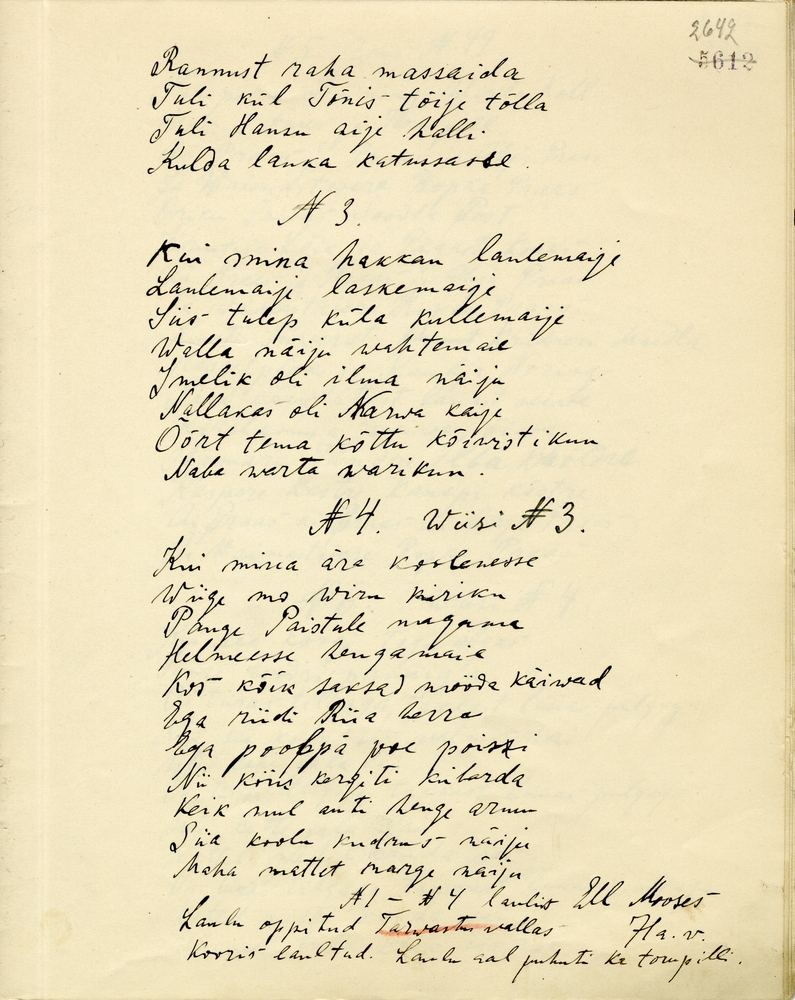 2642
5612
Rannust raha massaida
Tuli kül Tõnis tõije tõlla
Tuli Hansu aije halli
Kulda lanka katussasse.
N 3.
Kui mina hakkan laulemaije
Laulemaije laskemaije
Siis tulep küla kullemaije
Walla näiju wahtemaie
Imelik oli ilma näiju
Nallakas oli Narwa kaije
Öört tema köttu köiwistikun
Naba warta warikun.
N 4. Wiisi N 3.
Kui mina ära koolenesse
Wiige mo Wiru kiriku
Pange Paistule magama
Helmeesse hengamaia
Kos kõik saksad mööda käiwad
Ega riidi Riia herra
Ega poolpä poe poissi
Nii kõiis kergiti kübarda
Keik mul anti henge armu
Siia koolu kudrus näiju
Maha mattet marge näiju
N1 – N 4 laulis Ell Mooses
Laulu oppitud Tarwastu wallas Ha. v.
Kooris laultud. Laulu aal puhuti ka torupilli.